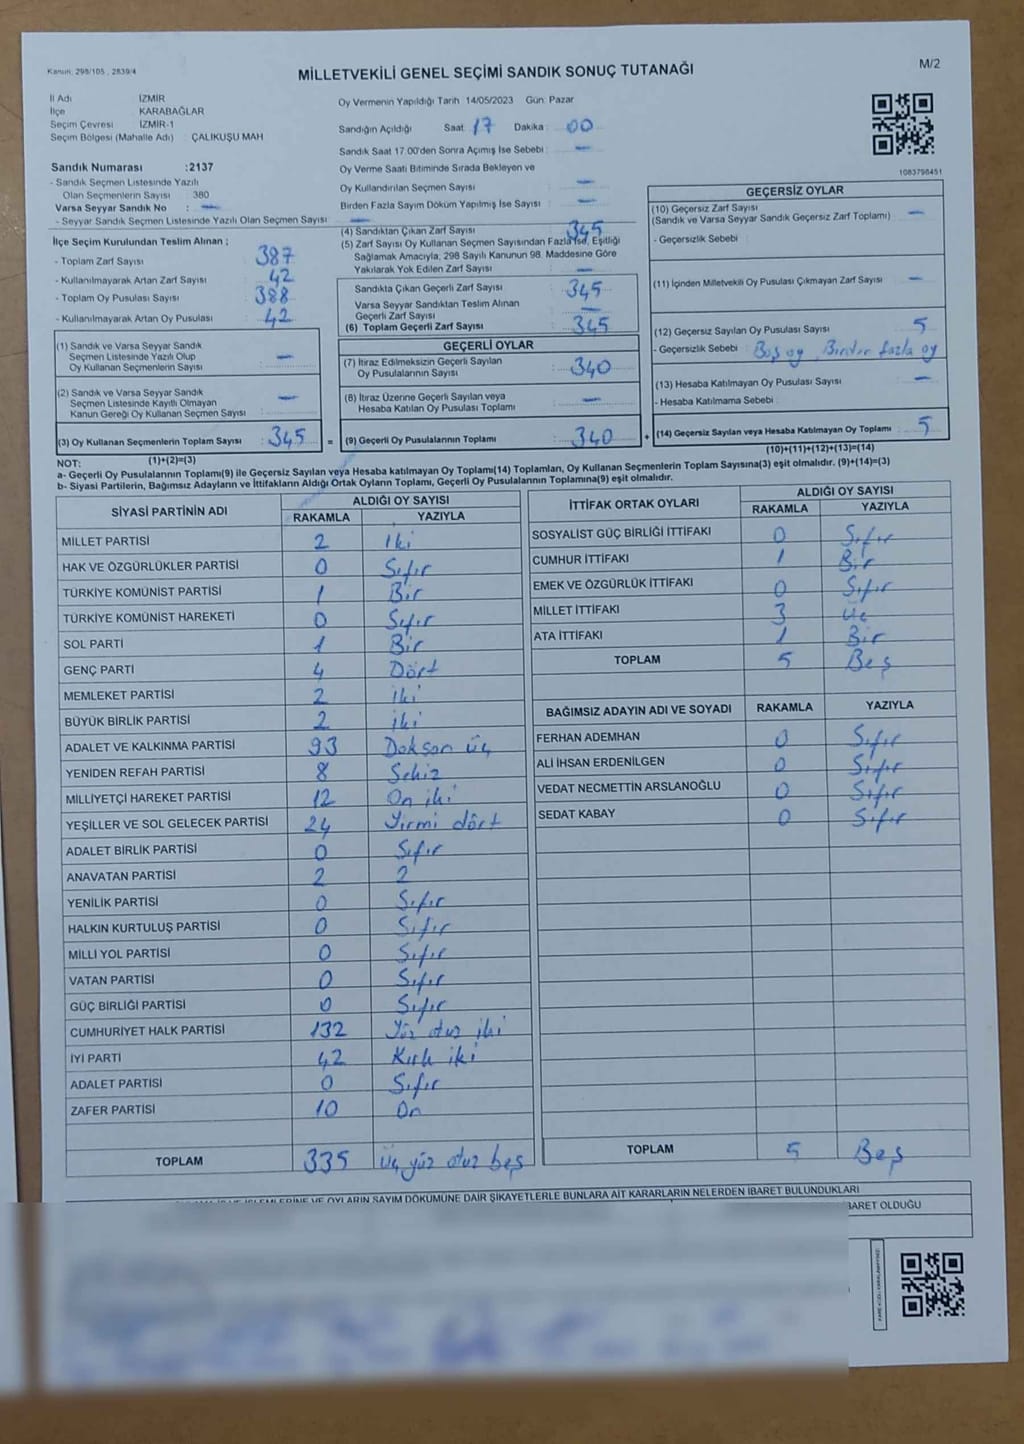 Kanun: 298/105 , 2839/4
MİLLETVEKİLİ GENEL SEÇİMİ SANDIK SONUÇ TUTANAĞI
M/2
İl Adı İZMİR
İlçe KARABAĞLAR
Seçim Çevresi İZMİR-1
Seçim Bölgesi (Mahalle Adı) : ÇALIKUŞU MAH
Oy Vermenin Yapıldığı Tarih 14/05/2023 Gün: Pazar
Sandığın Açıldığı Saat 17 Dakika : 00
Sandık Saat 17.00'den Sonra Açılmış İse Sebebi : —
Oy Verme Saati Bitiminde Sırada Bekleyen ve
Oy Kullandırılan Seçmen Sayısı : —
Birden Fazla Sayım Döküm Yapılmış İse Sayısı : —
1083798451
Sandık Numarası :2137
- Sandık Seçmen Listesinde Yazılı
Olan Seçmenlerin Sayısı : 380
Varsa Seyyar Sandık No : —
- Seyyar Sandık Seçmen Listesinde Yazılı Olan Seçmen Sayısı : —
İlçe Seçim Kurulundan Teslim Alınan ;
- Toplam Zarf Sayısı : 387
- Kullanılmayarak Artan Zarf Sayısı : 42
- Toplam Oy Pusulası Sayısı : 388
- Kullanılmayarak Artan Oy Pusulası : 42
(1) Sandık ve Varsa Seyyar Sandık
Seçmen Listesinde Yazılı Olup
Oy Kullanan Seçmenlerin Sayısı : —
(2) Sandık ve Varsa Seyyar Sandık
Seçmen Listesinde Kayıtlı Olmayan
Kanun Gereği Oy Kullanan Seçmen Sayısı : —
(3) Oy Kullanan Seçmenlerin Toplam Sayısı : 345 =
(1)+(2)=(3)
(4) Sandıktan Çıkan Zarf Sayısı : 345
(5) Zarf Sayısı Oy Kullanan Seçmen Sayısından Fazla İse, Eşitliği
Sağlamak Amacıyla, 298 Sayılı Kanunun 98. Maddesine Göre
Yakılarak Yok Edilen Zarf Sayısı : —
Sandıkta Çıkan Geçerli Zarf Sayısı : 345
Varsa Seyyar Sandıktan Teslim Alınan
Geçerli Zarf Sayısı : —
(6) Toplam Geçerli Zarf Sayısı : 345
GEÇERLİ OYLAR
(7) İtiraz Edilmeksizin Geçerli Sayılan
Oy Pusulalarının Sayısı : 340
(8) İtiraz Üzerine Geçerli Sayılan veya
Hesaba Katılan Oy Pusulası Toplamı : —
(9) Geçerli Oy Pusulalarının Toplamı : 340 +
GEÇERSİZ OYLAR
(10) Geçersiz Zarf Sayısı
(Sandık ve Varsa Seyyar Sandık Geçersiz Zarf Toplamı) : —
- Geçersizlik Sebebi :
(11) İçinden Milletvekili Oy Pusulası Çıkmayan Zarf Sayısı : —
(12) Geçersiz Sayılan Oy Pusulası Sayısı : 5
- Geçersizlik Sebebi : Boş oy, Birden fazla oy
(13) Hesaba Katılmayan Oy Pusulası Sayısı : —
- Hesaba Katılmama Sebebi :
(14) Geçersiz Sayılan veya Hesaba Katılmayan Oy Toplamı : 5
(10)+(11)+(12)+(13)=(14)
NOT:
a- Geçerli Oy Pusulalarının Toplamı(9) ile Geçersiz Sayılan veya Hesaba katılmayan Oy Toplamı(14) Toplamları, Oy Kullanan Seçmenlerin Toplam Sayısına(3) eşit olmalıdır. (9)+(14)=(3)
b- Siyasi Partilerin, Bağımsız Adayların ve İttifakların Aldığı Ortak Oyların Toplamı, Geçerli Oy Pusulalarının Toplamına(9) eşit olmalıdır.
SİYASİ PARTİNİN ADI ALDIĞI OY SAYISI
RAKAMLA YAZIYLA
MİLLET PARTİSİ 2 İki
HAK VE ÖZGÜRLÜKLER PARTİSİ 0 Sıfır
TÜRKİYE KOMÜNİST PARTİSİ 1 Bir
TÜRKİYE KOMÜNİST HAREKETİ 0 Sıfır
SOL PARTİ 1 Bir
GENÇ PARTİ 4 Dört
MEMLEKET PARTİSİ 2 iki
BÜYÜK BİRLİK PARTİSİ 2 iki
ADALET VE KALKINMA PARTİSİ 93 Doksan üç
YENİDEN REFAH PARTİSİ 8 Sekiz
MİLLİYETÇİ HAREKET PARTİSİ 12 On iki
YEŞİLLER VE SOL GELECEK PARTİSİ 24 Yirmi dört
ADALET BİRLİK PARTİSİ 0 Sıfır
ANAVATAN PARTİSİ 2 2
YENİLİK PARTİSİ 0 Sıfır
HALKIN KURTULUŞ PARTİSİ 0 Sıfır
MİLLİ YOL PARTİSİ 0 Sıfır
VATAN PARTİSİ 0 Sıfır
GÜÇ BİRLİĞİ PARTİSİ 0 Sıfır
CUMHURİYET HALK PARTİSİ 132 Yüz otuz iki
İYİ PARTİ 42 Kırk iki
ADALET PARTİSİ 0 Sıfır
ZAFER PARTİSİ 10 On
TOPLAM 335 Üç yüz otuz beş
İTTİFAK ORTAK OYLARI ALDIĞI OY SAYISI
RAKAMLA YAZIYLA
SOSYALİST GÜÇ BİRLİĞİ İTTİFAKI 0 Sıfır
CUMHUR İTTİFAKI 1 Bir
EMEK VE ÖZGÜRLÜK İTTİFAKI 0 Sıfır
MİLLET İTTİFAKI 3 Üç
ATA İTTİFAKI 1 Bir
TOPLAM 5 Beş
BAĞIMSIZ ADAYIN ADI VE SOYADI RAKAMLA YAZIYLA
FERHAN ADEMHAN 0 Sıfır
ALİ İHSAN ERDENİLGEN 0 Sıfır
VEDAT NECMETTİN ARSLANOĞLU 0 Sıfır
SEDAT KABAY 0 Sıfır
TOPLAM 5 Beş
VE OYLARIN SAYIM DÖKÜMÜNE DAİR ŞİKAYETLERLE BUNLARA AİT KARARLARIN NELERDEN İBARET BULUNDUKLARI
İBARET OLDUĞU